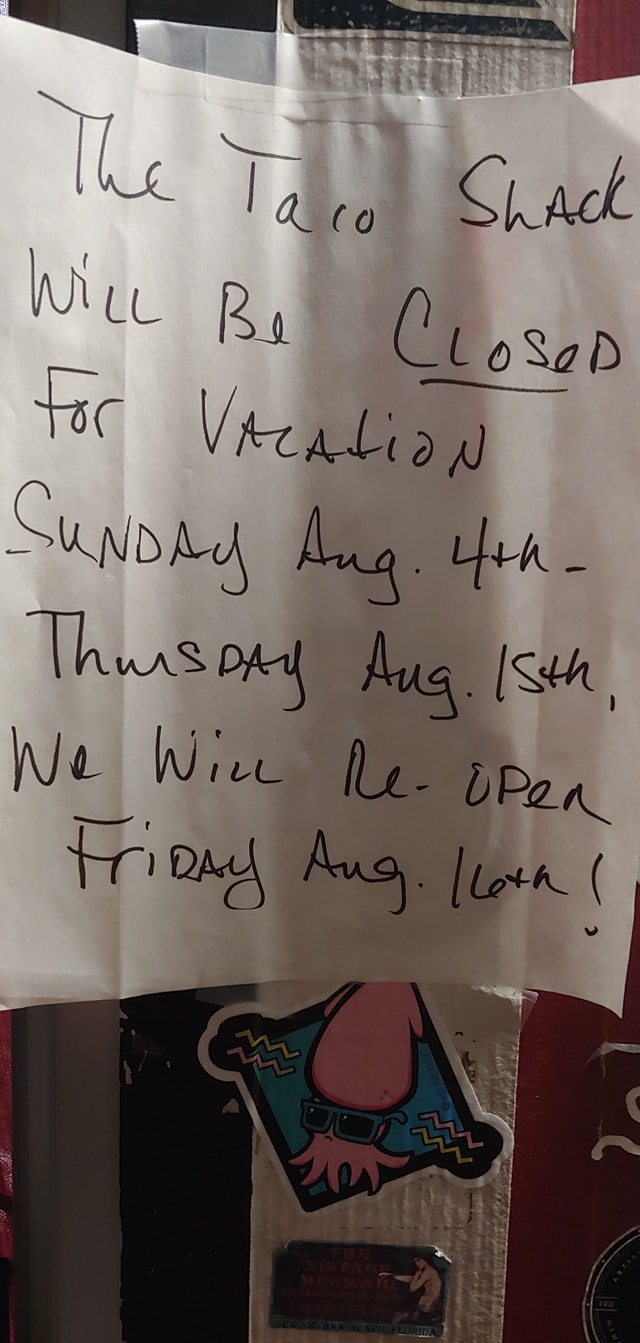 The Taco Shack
Will Be Closed
For Vacation
Sunday Aug. 4th -
Thursday Aug. 15th,
We Will Re-open
Friday Aug. 16th!
THE
VINTAGE
MERMAID
NEW SMYRNA BEACH, FLORIDA